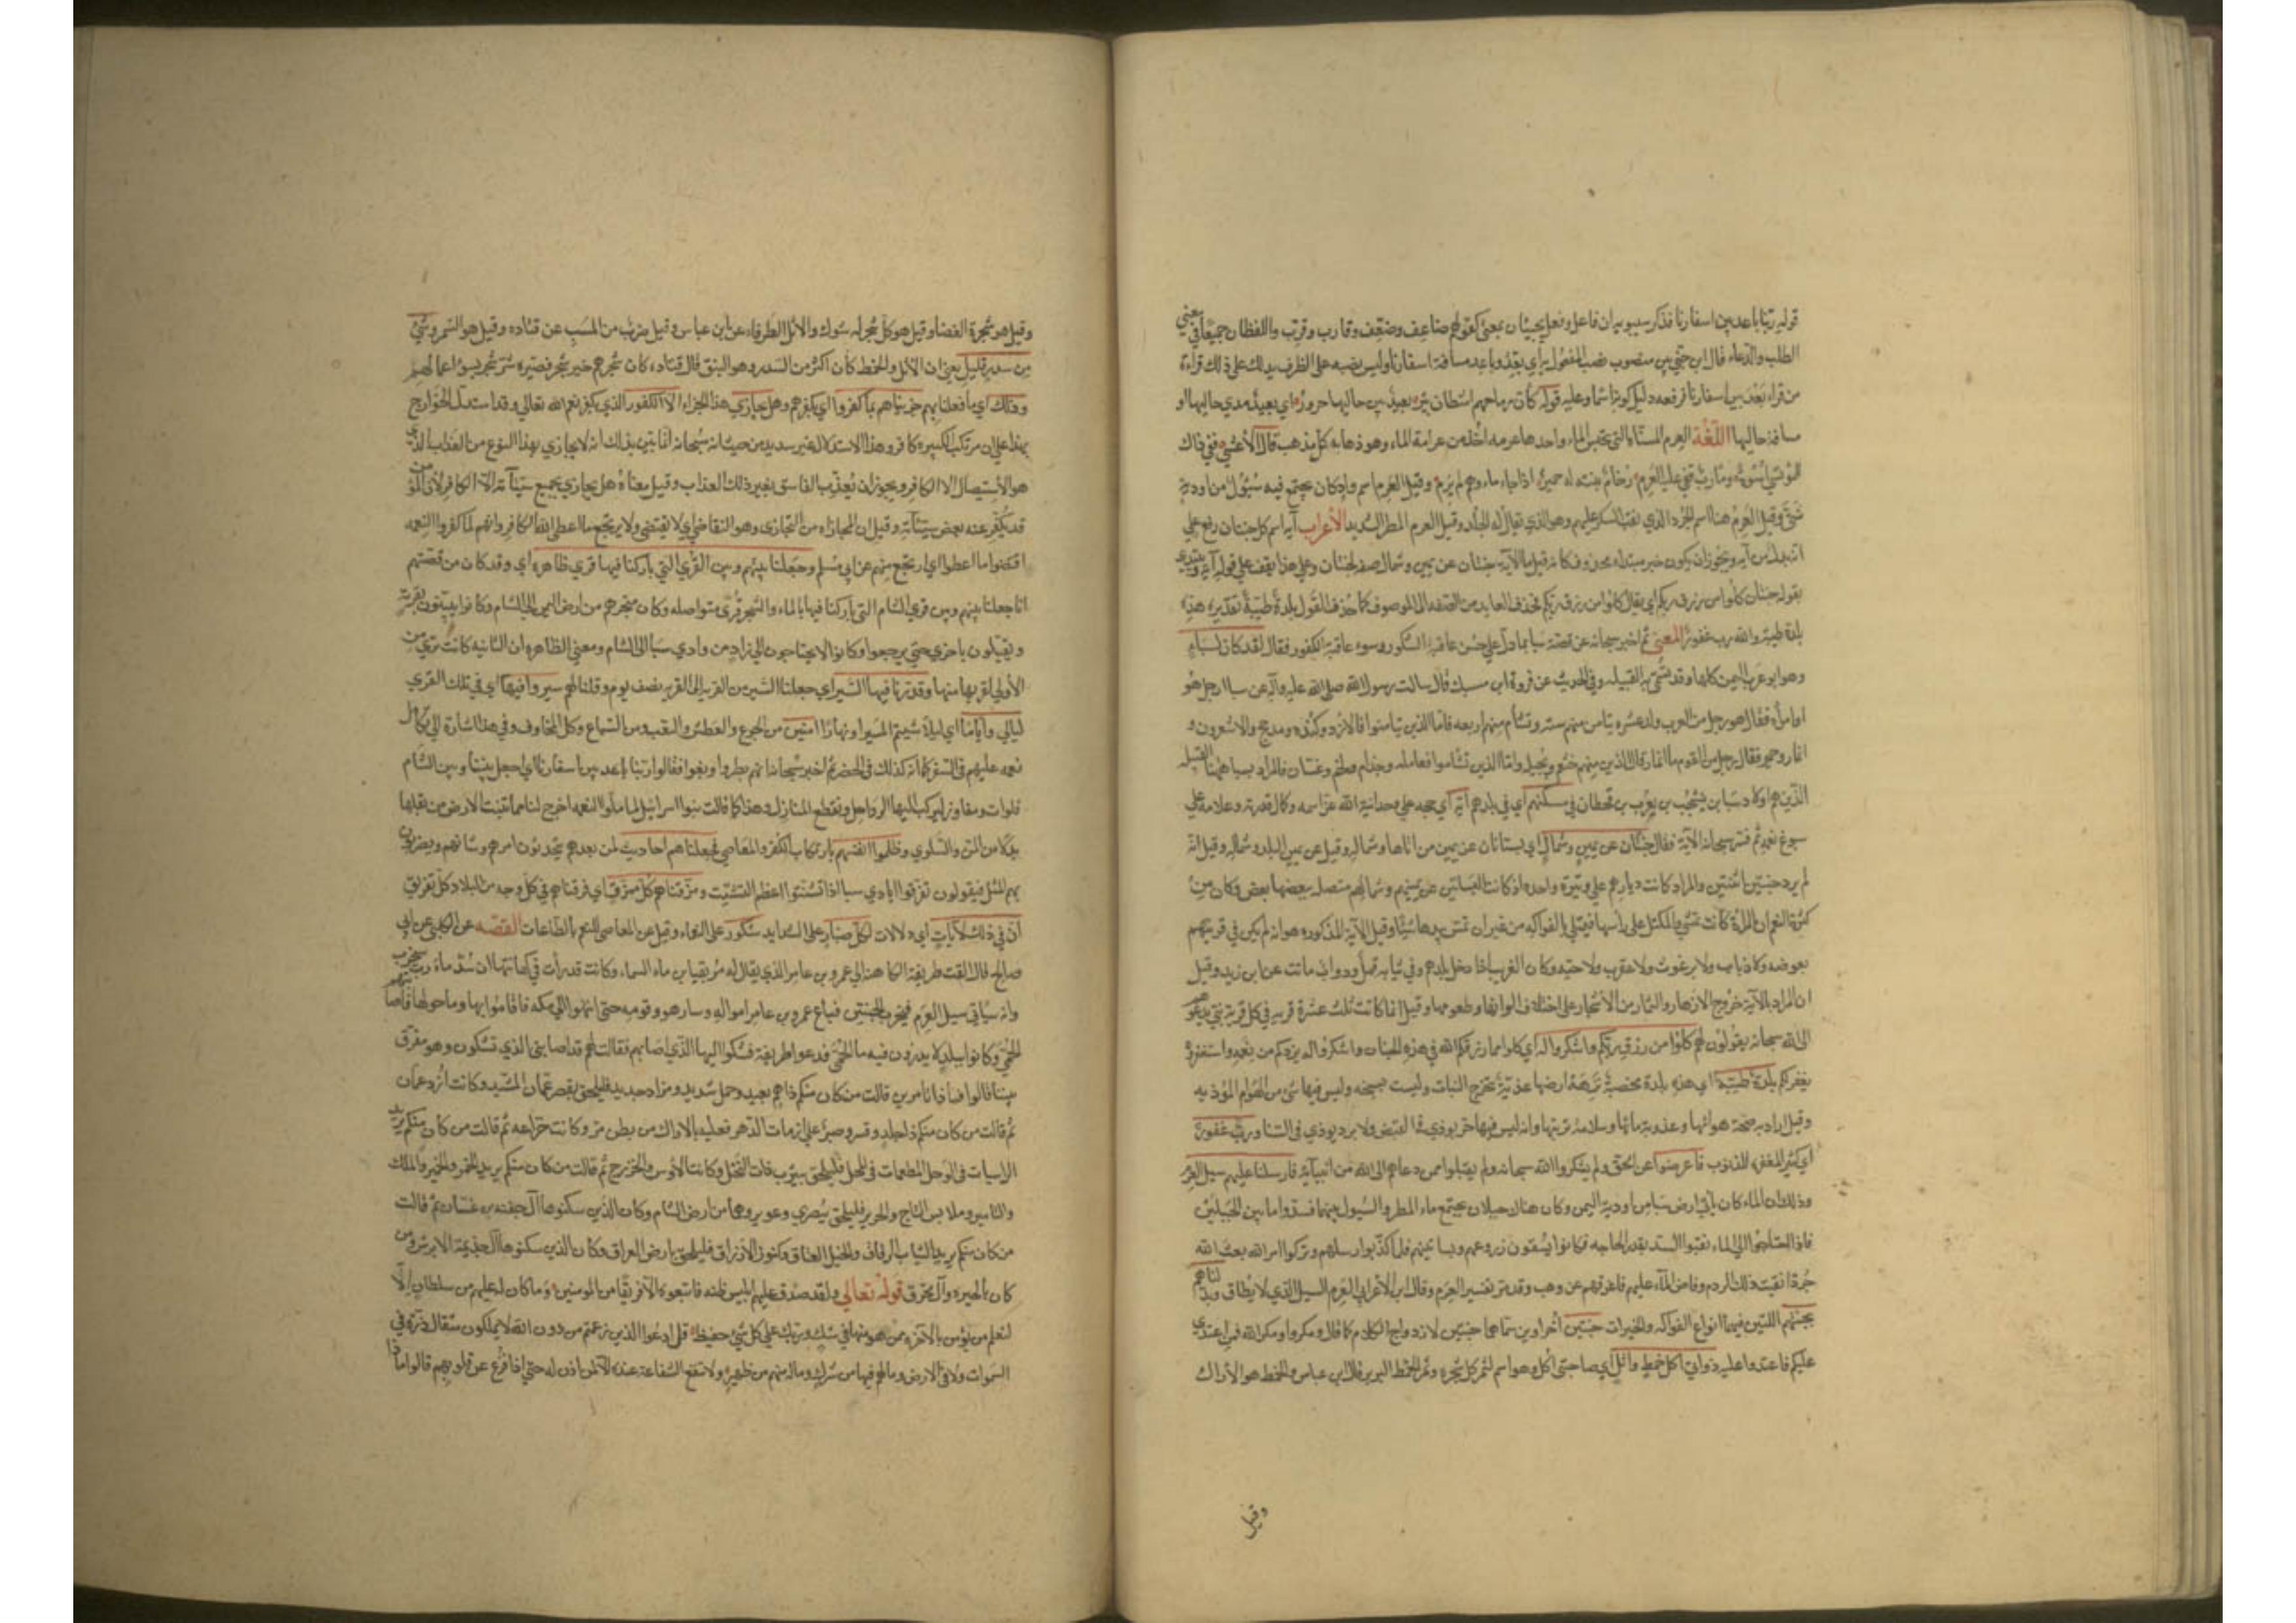 قوله ربنا باعد بين اسفارنا فذكر سيبويه ان فاعل وفعل يجيئان بمعنى كقولهم ضاعف وضعّف وقارب وقرّب واللفظان جميعا في معنى
الطلب والدعاء قال ابن جني بين منصوب نصب المفعول به اي بعد وباعد مسافة اسفارنا وليس نصبه على الظرف يدلك على ذلك قراءة
من قراء بَعُدَ بين اسفارنا فرفعه دليل كونه اسما وعليه قوله كأن رماحهم اشطان بئر بعيد بين جاليها جرور اي بعيد مدي جاليها او
مسافة جاليها اللّغة العرم المسناة التي تحبس الماء واحدها عرمه اخذ من عرامة الماء وهو ذهابه كل مذهب قال الاعشى ففي ذاك
للمؤتسي اسوة ومارب قفى عليه العرم رخام بنته له حمير اذا جاء ماءهم لم يرم وقيل العرم اسم واد كان يجتمع فيه سيول من اودية
شتى وقيل العرم هنا اسم الجرذ الذي نقب السكر عليهم وهو الذي يقال له الخلد وقيل العرم المطر الشديد الأعراب آية اسم كان جنتان رفع على
انه بدل من آية ويجوز ان يكون خبر مبتداء محذوف كانه قيل ما الآية جنتان عن يمين وشمال صفة لجنتان وعلى هذا يقف على قوله آية ويبتدي
بقوله جنتان كلوا من رزق ربكم اي يقال كلوا من رزق ربكم فحذف العايد من الصفة الى الموصوف كما حذف القول بلدة طيبة تقديره هذه
بلدة طيبة والله رب غفور المعنى ثم اخبر سبحانه عن قصة سبا بما دل على حسن عاقبة الشكور وسوء عاقبة الكفور فقال لقد كان لسباء
وهو ابو عرب اليمن كلها وقد تسمى به القبيله وفي الحديث عن فروة بن مسيك قال سالت رسول الله صلى الله عليه وآله عن سبا ارجل هو
ام امرأة فقال هو رجل من العرب ولد عشره تيامن منهم سته وتشأم منهم اربعه فاما الذين تيامنوا فالازد وكنده ومذحج والاشعرون و
انمار وحمير فقال رجل من القوم ما انمار قال الذين منهم خثعم وبجيلة واما الذين تشاموا فعامله وجذام ولخم وغسان فالمراد بسبا ههنا القبيله
الذين هم اولاد سبا بن يشجب بن يعرب بن قحطان في مسكنهم اي في بلدهم آية اي حجه على وحدانية الله عز اسمه وكمال قدرته وعلامة على
سبوغ نعمه ثم فسر سبحانه الآية فقال جنتان عن يمين وشمال اي بستانان عن يمين من اتاها وشماله وقيل عن يمين البلد وشماله وقيل انه
لم يرد جنتين اثنتين والمراد كانت ديارهم على وتيرة واحده اذ كانت البساتين عن يمينهم وشمالهم متصله بعضها ببعض وكان من
كثرة النعم ان المرأة كانت تمشي والمكتل على رأسها فيمتلي بالفواكه من غير ان تمس بيدها شيئا وقيل الآية المذكوره هو انه لم يكن في قريتهم
بعوضه ولا ذباب ولا برغوث ولا عقرب ولا حيه وكان الغريب اذا دخل بلدهم وفي ثيابه قمل ودواب ماتت عن ابن زيد وقيل
ان المراد بالآية خروج الازهار والثمار من الأشجار على اختلاف الوانها وطعومها وقيل انما كانت ثلث عشرة قريه في كل قرية نبي يدعوهم
الى الله سبحانه يقولون لهم كلوا من رزق ربكم واشكروا له اي كلوا مما رزقكم الله في هذه الجنان واشكروا له يزدكم من نعمه واستغفروه
يغفر لكم بلدة طيبة اي هذه بلدة مخصبة نزهة ارضها عذبة تخرج النبات وليست بسبخه وليس فيها شي من الهوام الموذيه
وقيل اراد به صحة هوائها وعذوبة مائها وسلامة تربتها وانه ليس فيها حر يوذي في القيض ولا برد يوذي في الشتا ورب غفور
اي كثير المغفرة للذنوب فاعرضوا عن الحق ولم يشكروا الله سبحانه ولم يقبلوا ممن دعاهم الى الله من انبيآئه فارسلنا عليهم سيل العرم
وذلك ان الماء كان ياتي ارض سبا من اودية اليمن وكان هناك جبلان يجتمع ماء المطر والسيول بينهما فسدوا ما بين الجبلين
فاذا احتاجوا الى الماء نقبوا السد بقدر الحاجه فكانوا يسقون زروعهم وبساتينهم فلما كذبوا رسلهم وتركوا امر الله بعث الله
جرذا نقبت ذلك الردم وفاض المآء عليهم فاغرقهم عن وهب وقد مر تفسير العرم وقال ابن الأعرابي العرم السيل الذي لا يطاق وبدلناهم
بجنتيهم اللتين فيهما انواع الفواكه والخيرات جنتين اخراوين سماهما جنتين لازدواج الكلام كما قال ومكروا ومكر الله فمن اعتدي
عليكم فاعتدوا عليه ذواتي اكل خمط واثل اي صاحبتي اكل وهو اسم لثمر كل شجرة وثمر الخمط البرير قال ابن عباس والخمط هو الأراك
وقيل
وقيل هو شجرة الغضا وقيل هو كل شجر له شوك والاثل الطرفاء عن ابن عباس وقيل ضرب من الخشب عن قتاده وقيل هو السمر وشيء
من سدر قليل يعني ان الاثل والخمط كان اكثر من السدر وهو النبق قال قتاده كان شجرهم خير شجر فصيره شر شجر بسوء اعمالهم
وذلك اي ما فعلنا بهم جزيناهم بما كفروا اي بكفرهم وهل نجازي هذا الجزاء الا الكفور الذي يكفر نعم الله تعالى وقد استدل الخوارج
بهذا على ان مرتكب الكبيره كافر وهذا الاستدلال غير سديد من حيث انه سبحانه انما بين بذلك انه لا يجازي بهذا النوع من العذاب الذي
هو الأستيصال الا الكافر ويجوز ان يعذب الفاسق بغير ذلك العذاب وقيل معناه هل يجازي بجميع سيئآته الا الكافر لأن المؤمن
قد يكفر عنه بعض سيئآته وقيل ان المجازاه من التجازى وهو التقاضي اي لا يقتضى ولا يرتجع ما اعطى الا الكافر وانهم لما كفروا النعمه
اقتضوا ما اعطوا اي ارتجع منهم عن ابي مسلم وجعلنا بينهم وبين القرى التي باركنا فيها قري ظاهره اي وقد كان من قصتهم
انا جعلنا بينهم وبين قري الشام التي باركنا فيها بالماء والشجر قرى متواصله وكان متجرهم من ارض اليمن الى الشام وكانوا يبيتون بقرية
ويقيلون باخري حتي يرجعوا وكانوا لا يحتاجون الى زاد من وادي سبأ الى الشام ومعنى الظاهره ان الثانيه كانت ترى من
الأولى لقربها منها وقدرنا فيها السير اي جعلنا السير من القريه الى القريه نصف يوم وقلنا لهم سيروا فيها اي في تلك القري
ليالي وأياما اي ليلا شيتم المسير او نهارا آمنين من الجوع والعطش والتعب ومن السباع وكل المخاوف وفي هذا اشارة الى تكامل
نعمه عليهم في السفر كما انه كذلك في الحضر ثم اخبر سبحانه انهم بطروا وبغوا فقالوا ربنا باعد بين اسفارنا اي اجعل بيننا وبين الشام
فلوات ومفاوز لنركب اليها الرواحل ونقطع المنازل وهذا كما قالت بنوا اسرائيل لما ملوا النعمه اخرج لنا مما تنبت الارض من بقلها
بدلا من المن والسلوي وظلموا انفسهم بارتكاب الكفر والمعاصي فجعلناهم احاديث لمن بعدهم يتحدثون امرهم وشانهم ويضربون
بهم المثل فيقولون تفرقوا ايادي سبا اذا تشتتوا اعظم التشتيت ومزقناهم كل ممزق اي فرقناهم في كل وجه من البلاد كل تفريق
ان في ذلك لآيات اي دلالات لكل صبار على الشدايد شكور على النعماء وقيل عن المعاصي للنعم بالطاعات القصّه عن الكلبي عن ابي
صالح قال القت طريفة الكاهنه الى عمرو بن عامر الذي يقال له مزيقيا بن ماء السماء وكانت قد رأت في كهانتها ان سد مأرب سيخرب
وانه سياتي سيل العرم فيخرب الجنتين فباع عمرو بن عامر امواله وسار هو وقومه حتى انتهوا الى مكه فاقاموا بها وما حولها فاصابتهم
الحمى وكانوا ببلد لا يدرون فيه ما الحمى فدعوا طريفة فشكوا اليها الذي اصابهم فقالت لهم قد اصابني الذي تشكون وهو مفرق
بيننا قالوا فماذا تامرين قالت من كان منكم ذا هم بعيد وحمل شديد ومزاد جديد فليلحق بقصر عمان المشيد وكانت ازد عمان
ثم قالت من كان منكم ذا جلد وقسر وصبر على ازمات الدهر فعليه بالاراك من بطن مر وكانت خزاعه ثم قالت من كان منكم يريد
الراسيات في الوحل المطعمات في المحل فليلحق بيثرب ذات النخل وكانت الأوس والخزرج ثم قالت من كان منكم يريد الخمر والخمير والملك
والتامير وملابس التاج والحرير فليلحق ببصري وعوير وهما من ارض الشام وكان الذين سكنوها آل جفنه بن غسان ثم قالت
من كان منكم يريد الثياب الرقاق والخيل العتاق وكنوز الارزاق فليلحق بارض العراق وكان الذين سكنوها آل جذيمة الابرش ومن
كان بالحيره وآل محرق قوله تعالى ولقد صدق عليهم ابليس ظنه فاتبعوه الا فريقا من المومنين وما كان له عليهم من سلطان الّا
لنعلم من يؤمن بالآخره ممن هو منها في شك وربك على كل شيء حفيظ قل ادعوا الذين زعمتم من دون الله لا يملكون مثقال ذرة في
السموات ولا في الارض وما لهم فيها من شرك وماله منهم من ظهير ولا تنفع الشفاعة عنده الا لمن اذن له حتى اذا فزع عن قلوبهم قالوا ماذا